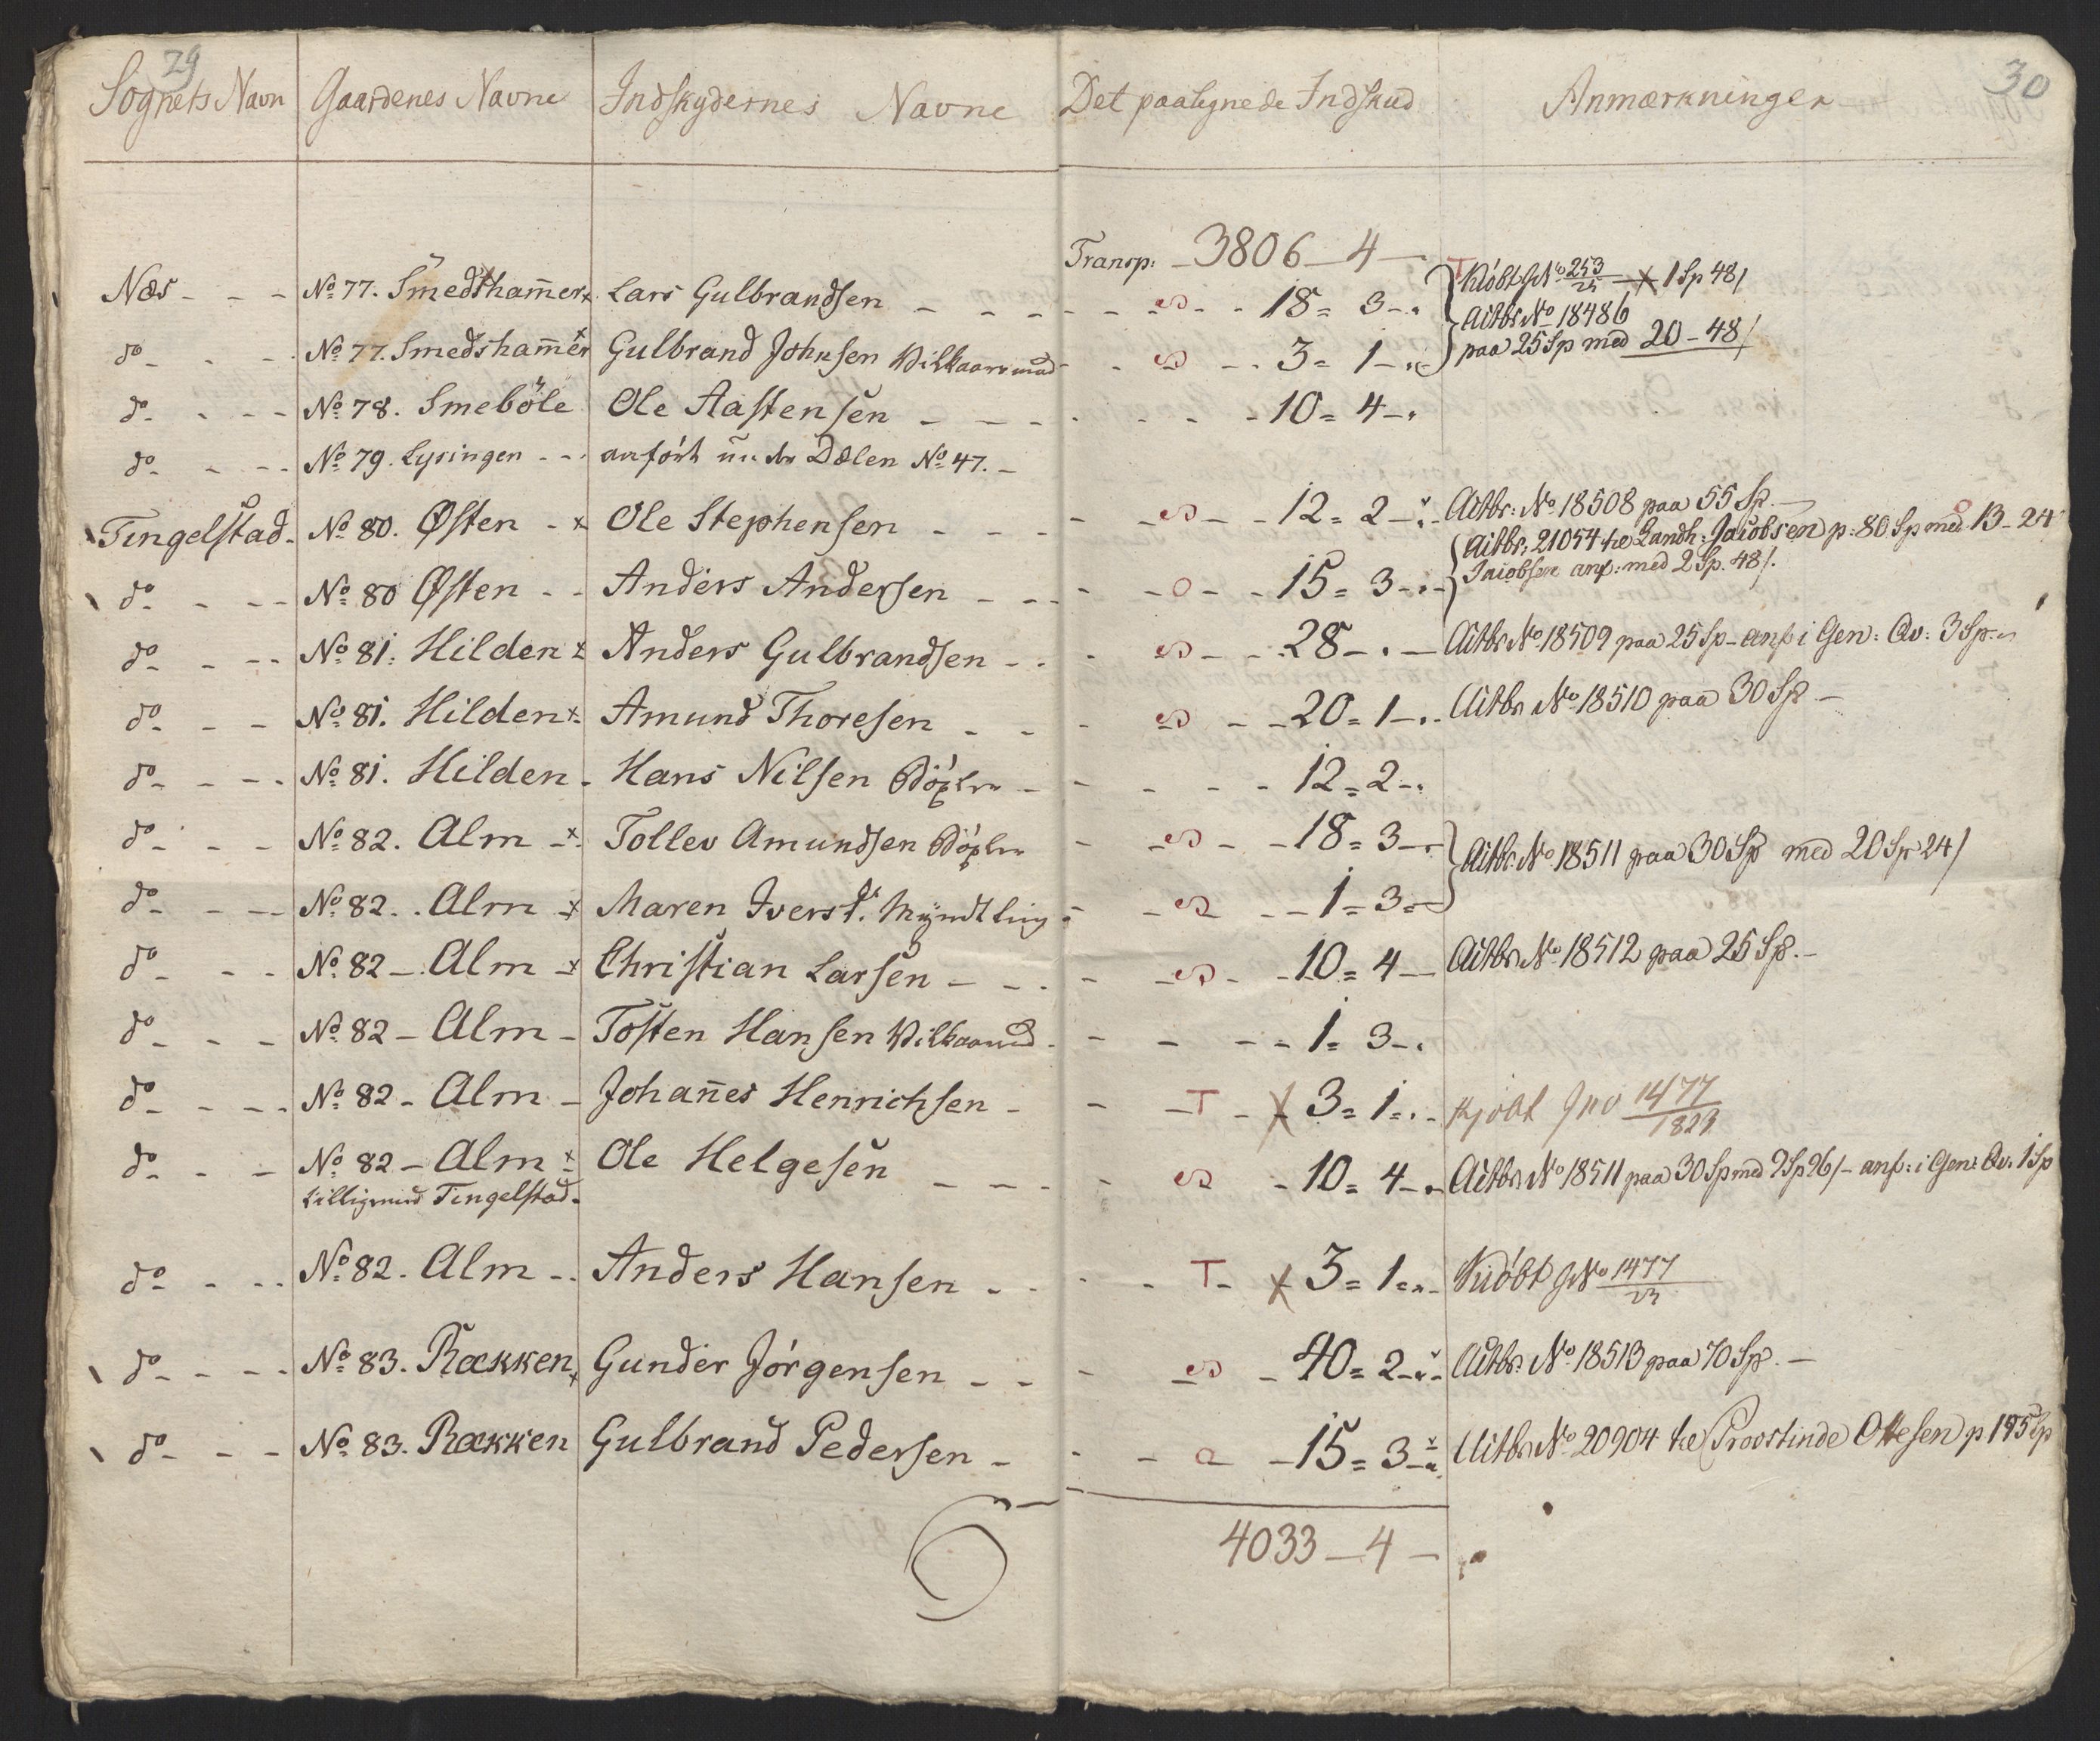 29
30
Sognets Navn Gaardenes Navne Indskydernes Navne Det paalignede Indskud Anmærkninger
Transp: 3806 _ 4 —
Næs - - - No 77. Smedshamer x Lars Gulbrandsen - - - 18 = 3 - . Kiöbt JNo 253/23 — x 1 Sp 48/
Aitbr No 18486
do - - - No 77. Smedshamer x Gulbrand Johnsen Vilkaarsmand - 3 = 1 - . paa 25 Sp med 20 - 48/
do - - - No 78. Smeböle Ole Aastensen - - - 10 = 4 - .
do - - - No 79. Lysingen - - anfört under Dælen No 47. -
Tingelstad - No 80. Østen - x Ole Stephensen - - - 12 = 2 - . Aitbr: No 18508 paa 55 Sp. —
Aitbr. 21054 til Landh: Jacobsen p: 80 Sp med 13 - 24
do - - - No 80 Østen - - Anders Andersen - - - o - - 15 = 3 - . - Jaiobsen anf: med 2 Sp. 48/.
do - - - No 81. Hilden x Anders Gulbrandsen - - - 28 - . - Aitbr No 18509 paa 25 Sp - anf i Gen: Qv: 3 Sp.
do - - - No 81. Hilden x Amund Thoresen - - - 20 = 1 - . Aitbr No 18510 paa 30 Sp —
do - - - No 81. Hilden - Hans Nilsen - - 12 = 2 - .
do - - - No 82. Alm - x Tollev Amundsen - - 18 = 3 - Aitbr No 18511 paa 30 Sp med 20 Sp 24/
do - - - No 82. Alm - x Maren Iversd. Myndtling - - 1 = 3 =
do - - - No 82 - Alm - x Christian Larsen - - - 10 = 4 — Aitbr No 18512 paa 25 Sp. —
do - - - No 82 - Alm - Tosten Hansen Vilkaarmd - - 1 = 3 - .
do - - - No 82 - Alm - Johanes Henrichsen - - T - x 3 = 1 = . - Kjöbt JNo 1477/1823
do - - - No 82 - Alm x Ole Helgesen - - - 10 = 4 - . Aitbr No 18511 paa 30 Sp med 9 Sp 96/ - anf: i Gen: Qv. 1 Sp
tilligemed Tingelstad -
do - - - No 82. Alm - - Anders Hansen - - - T - x 3 = 1 = . - Kiöbt JNo 1477/23
do - - - No 83. Rækken x Gunder Jörgensen - - - 40 = 2 - . - Aitbr. No 18513 paa 70 Sp. —
do - - - No 83. Rækken Gulbrand Pedersen - - - a - 15 = 3 - Uitbr No 20904 til Provstinde Ottesen p 195 Sp
4033 _ 4 —